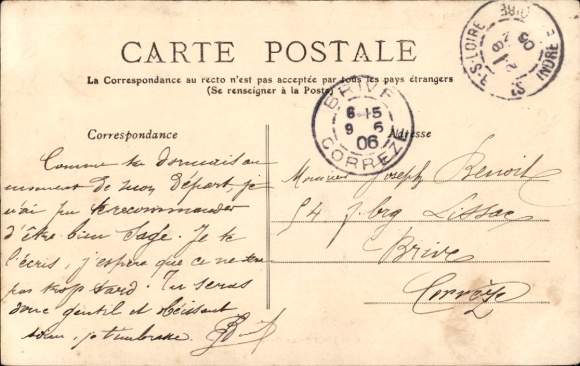 CARTE POSTALE
La Correspondance au recto n'est pas acceptée par tous les pays étrangers
(Se renseigner à la Poste)
BRIVE
6-15
9 6
06
CORREZE
S-LOIRE
INDRE
Correspondance
Adresse
Comme tu dormais au
moment de mon départ, je
n'ai pu te recommander
d'être bien sage. Je te
l'écris, j'espère que ce ne sera
pas trop tard. Tu seras
donc gentil et obéissant
je t'embrasse.
Monsieur Joseph Benoit
54 Lissac
Brive
Corrèze